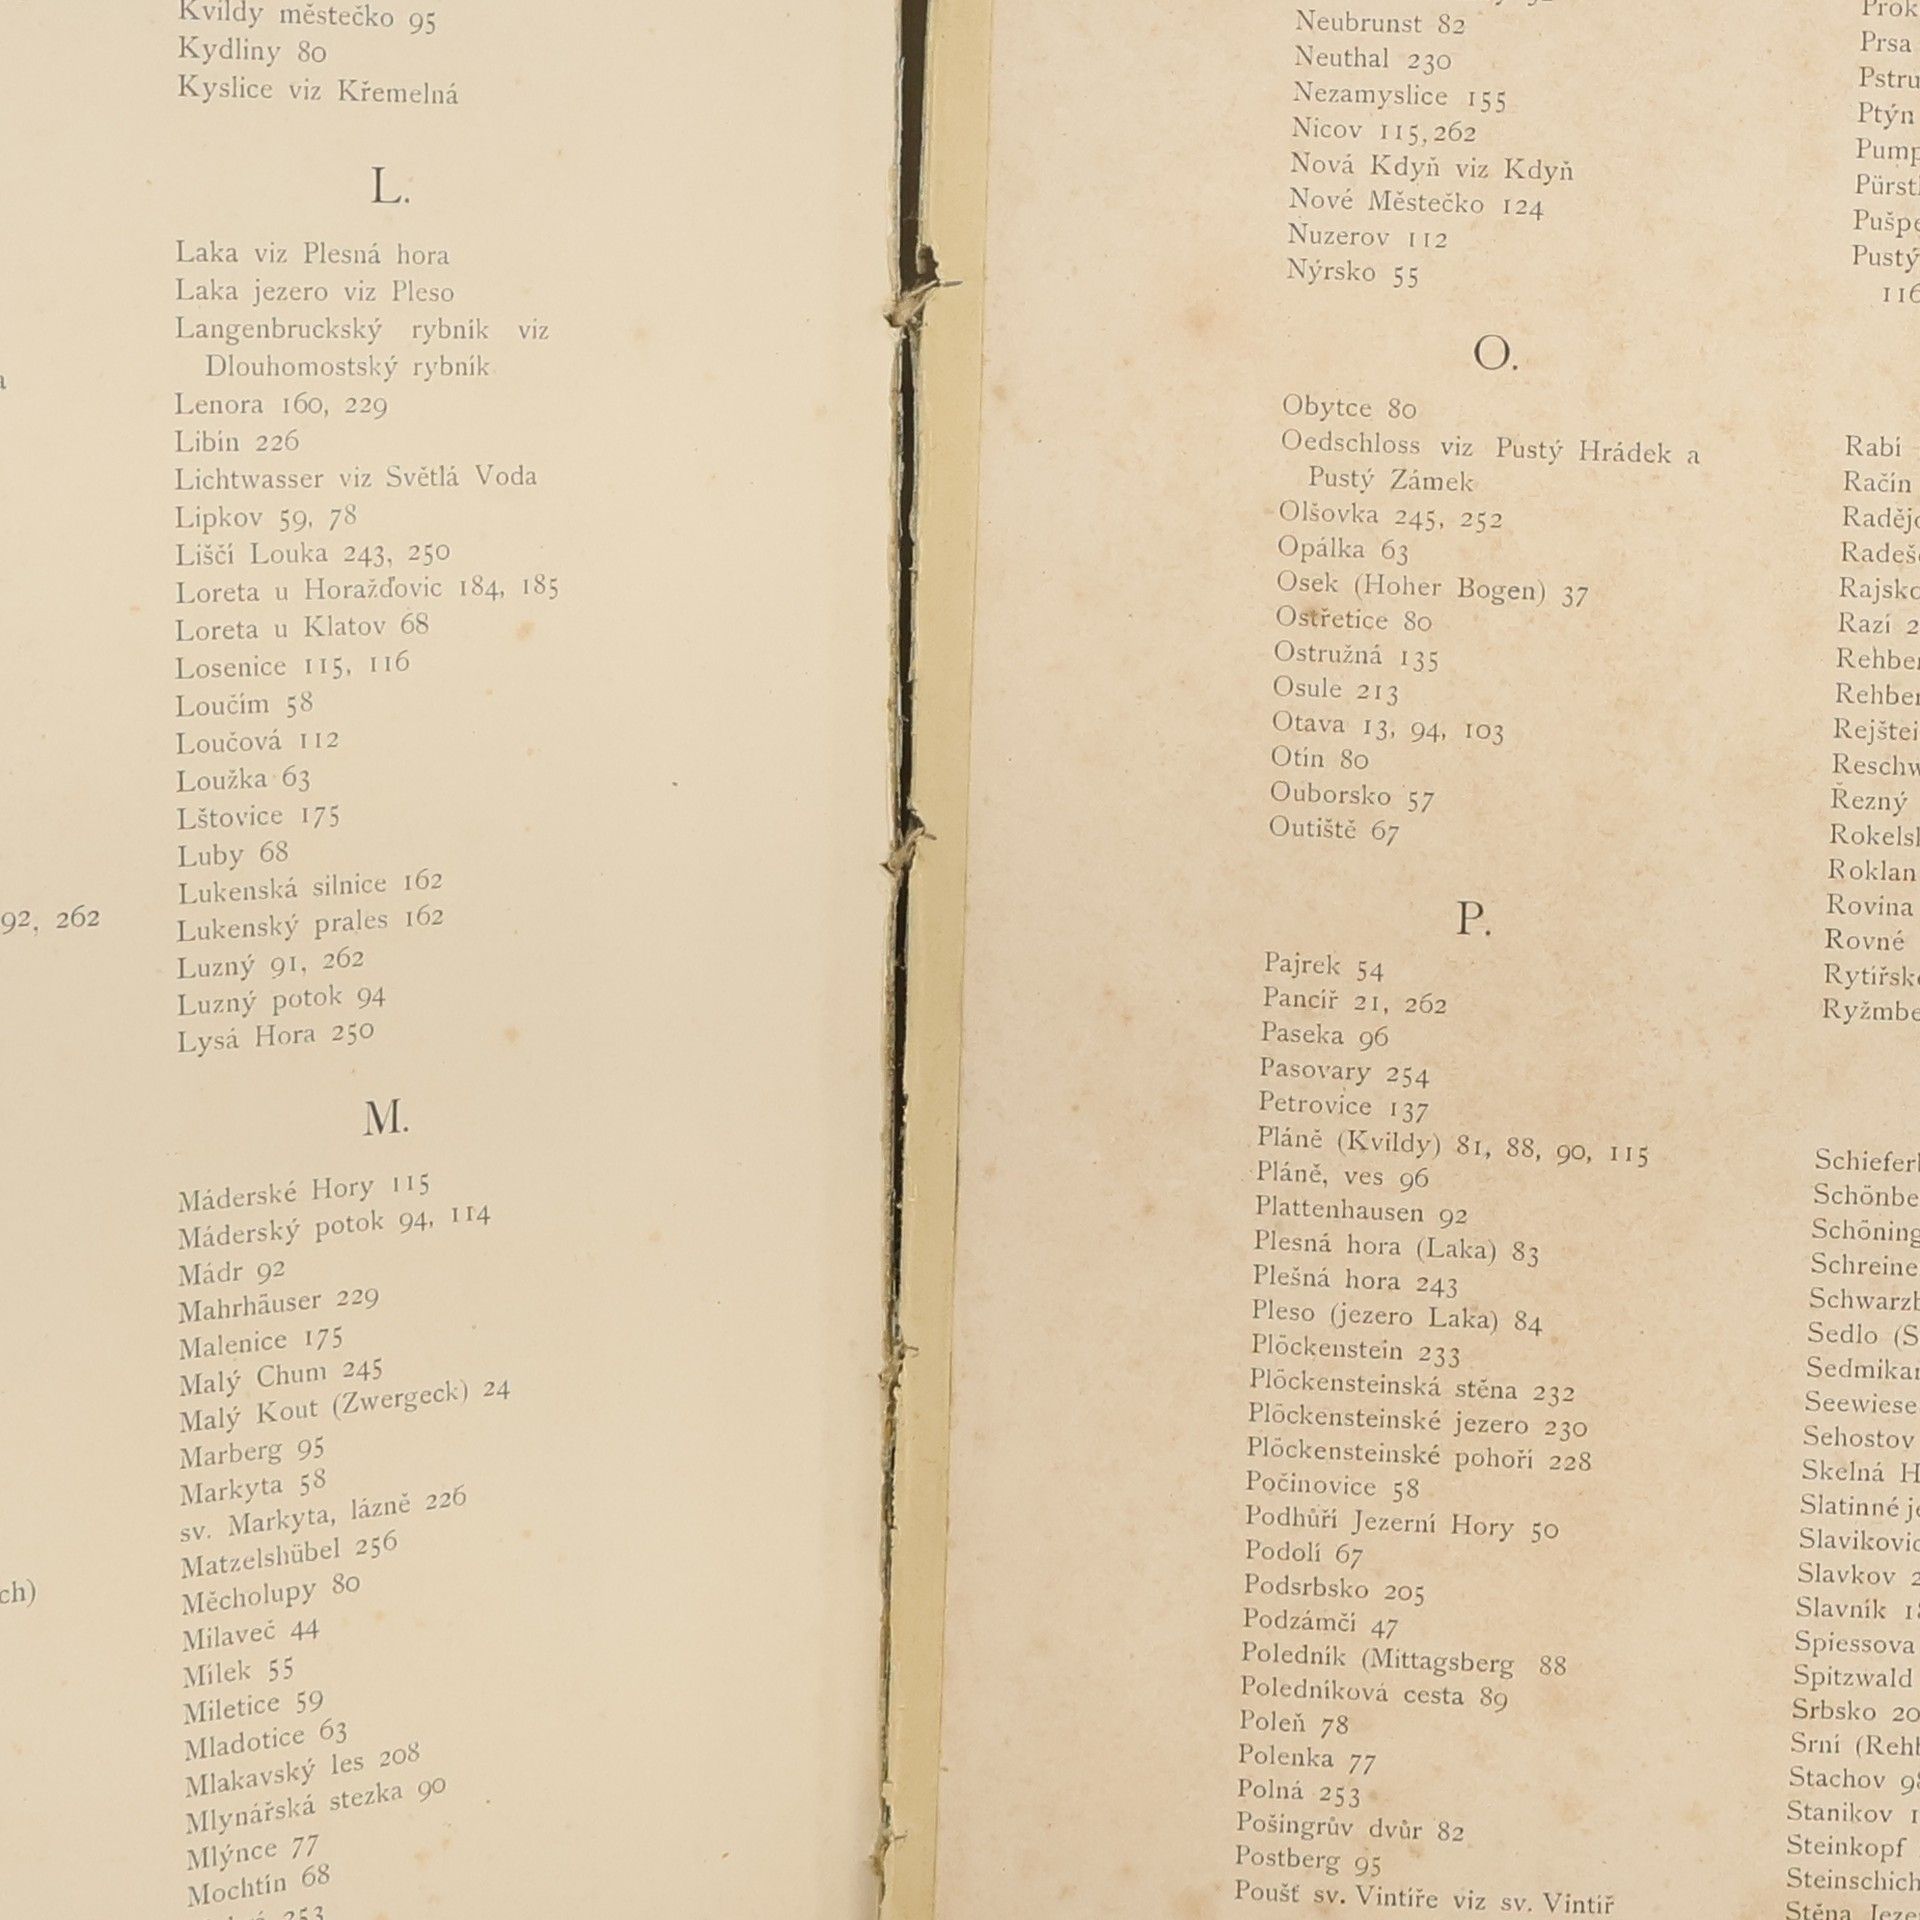 92, 262
ch)
Kvildy městečko 95
Kydliny 80
Kyslice viz Křemelná
L.
Laka viz Plesná hora
Laka jezero viz Pleso
Langenbruckský rybník viz
Dlouhomostský rybník
Lenora 160, 229
Libín 226
Lichtwasser viz Světlá Voda
Lipkov 59, 78
Liščí Louka 243, 250
Loreta u Horažďovic 184, 185
Loreta u Klatov 68
Losenice 115, 116
Loučím 58
Loučová 112
Loužka 63
Lštovice 175
Luby 68
Lukenská silnice 162
Lukenský prales 162
Luzný 91, 262
Luzný potok 94
Lysá Hora 250
M.
Máderské Hory 115
Máderský potok 94, 114
Mádr 92
Mahrhäuser 229
Malenice 175
Malý Chum 245
Malý Kout (Zwergeck) 24
Marberg 95
Markyta 58
sv. Markyta, lázně 226
Matzelshübel 256
Měcholupy 80
Milaveč 44
Mílek 55
Miletice 59
Mladotice 63
Mlakavský les 208
Mlynářská stezka 90
Mlýnce 77
Mochtín 68
253
Neubrunst 82
Neuthal 230
Nezamyslice 155
Nicov 115, 262
Nová Kdyň viz Kdyň
Nové Městečko 124
Nuzerov 112
Nýrsko 55
O.
Obytce 80
Oedschloss viz Pustý Hrádek a
Pustý Zámek
Olšovka 245, 252
Opálka 63
Osek (Hoher Bogen) 37
Ostřetice 80
Ostružná 135
Osule 213
Otava 13, 94, 103
Otín 80
Ouborsko 57
Outiště 67
P.
Pajrek 54
Pancíř 21, 262
Paseka 96
Pasovary 254
Petrovice 137
Pláně (Kvildy) 81, 88, 90, 115
Pláně, ves 96
Plattenhausen 92
Plesná hora (Laka) 83
Plešná hora 243
Pleso (jezero Laka) 84
Plöckenstein 233
Plöckensteinská stěna 232
Plöckensteinské jezero 230
Plöckensteinské pohoří 228
Počinovice 58
Podhůří Jezerní Hory 50
Podolí 67
Podsrbsko 205
Podzámčí 47
Poledník (Mittagsberg 88
Poledníková cesta 89
Poleň 78
Polenka 77
Polná 253
Pošingrův dvůr 82
Postberg 95
Poušť sv. Vintíře viz sv. Vintíř
Prok
Prsa
Pstru
Ptýn
Pump
Pürstl
Pušpe
Pustý
116
Rabí
Račín
Radějo
Radeš
Rajsko
Razí 2
Rehber
Rehber
Rejštei
Reschw
Řezný
Rokels
Roklan
Rovina
Rovné
Rytířsk
Ryžmbe
Schiefer
Schönbe
Schöning
Schreine
Schwarzb
Sedlo (S
Sedmikar
Seewiese
Sehostov
Skelná H
Slatinné je
Slavikovic
Slavkov 2
Slavník 18
Spiessova
Spitzwald
Srbsko 20
Srní (Reh
Stachov 98
Stanikov 1
Steinkopf
Steinschich
Stěna Jeze